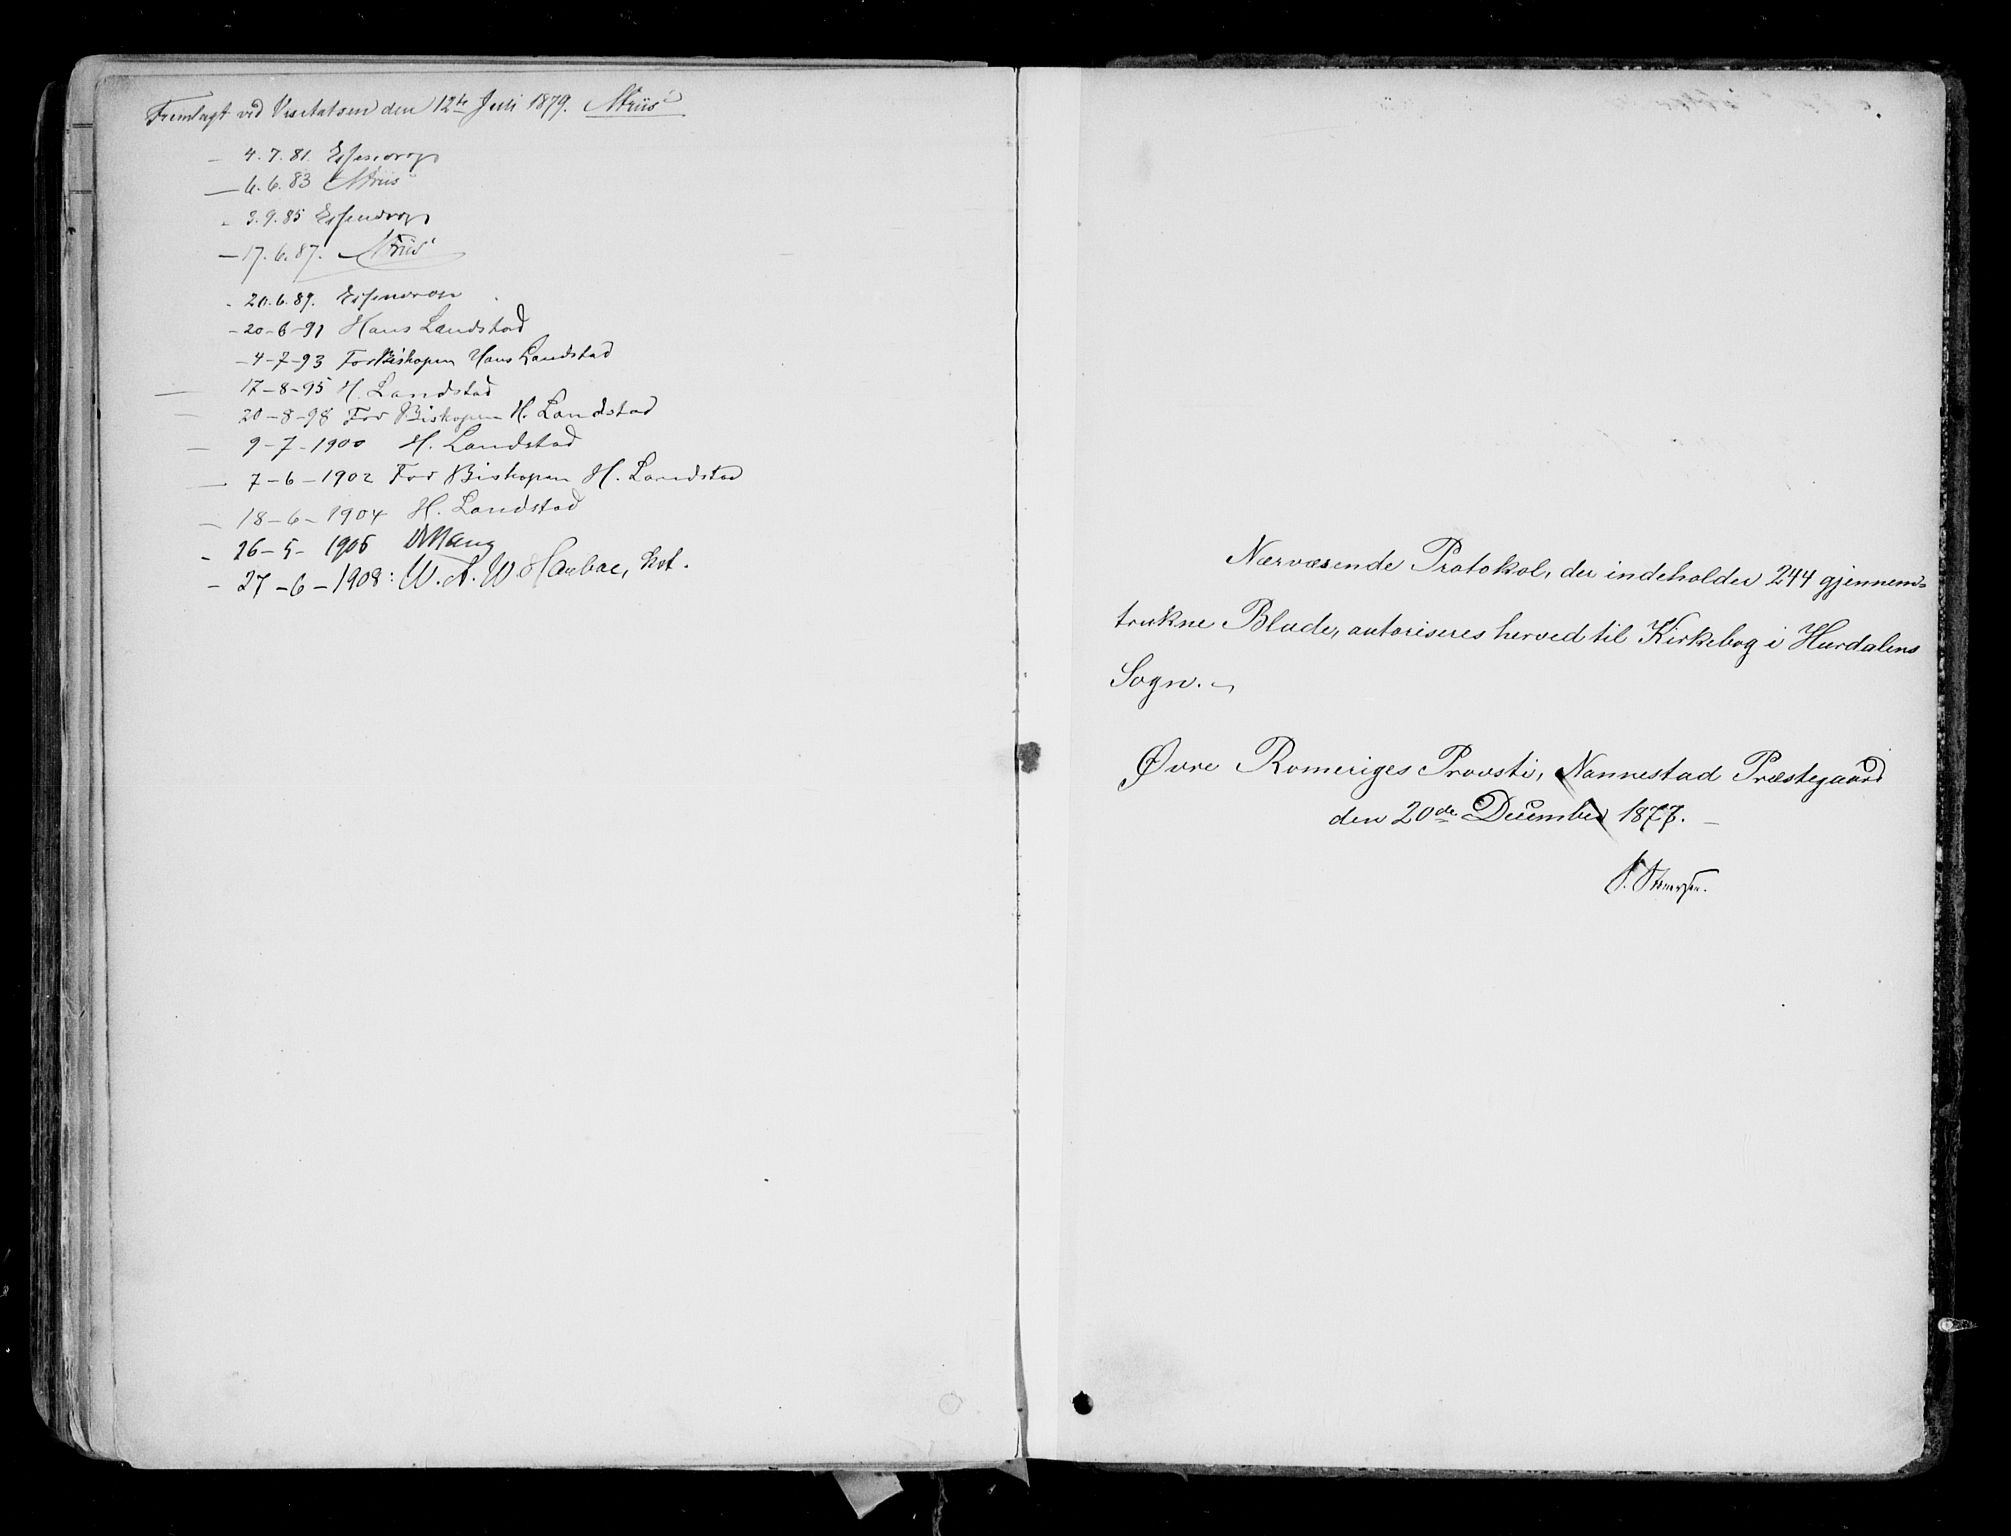 Fremlagt ved Visitatsen den 12te Juli 1879. NFriis
— 4.7.81. Essendrop
— 6.6.83 NFriis
- 3.9.85 Essendrop
— 17.6.87. NFriis
- 20.6.89. Essendrop
- 20-6-91 Hans Landstad
- 4-7-93 For Biskopen Hans Landstad
— 17-8-95 H. Landstad
— 20-8-98 For Biskopen H. Landstad
— 9-7-1900 H. Landstad
— 7-6-1902 For Biskopen H. Landstad
— 18-6-1904 H. Landstad
- 26-5-1906
- 27-6-1908: W. A. W
Nærværende Protokol, der indeholder 244 gjennem-
trukne Blade, autoriseres herved til Kirkebog i Hurdalens
Sogn. —
Øvre Romeriges Provsti, Nannestad Præstegaard
den 20de December 1877. —